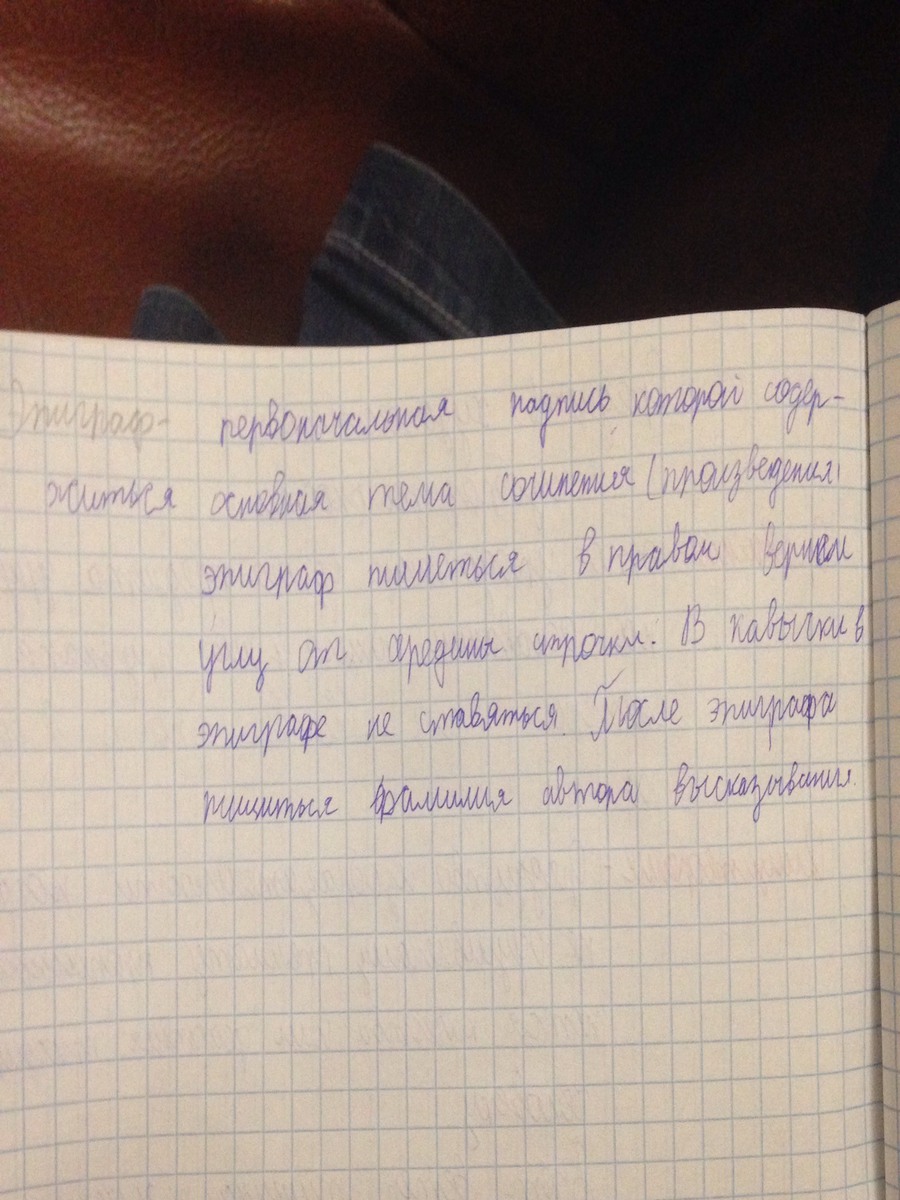 Эпиграф- первоначальная надпись которой содер-
житься основная тема сочинения (произведения)
эпиграф пишеться в правом верхнем
углу от средины строчки. В кавычки в
эпиграфе не ставяться. После эпиграфа
пишиться фамилия автора высказывания.